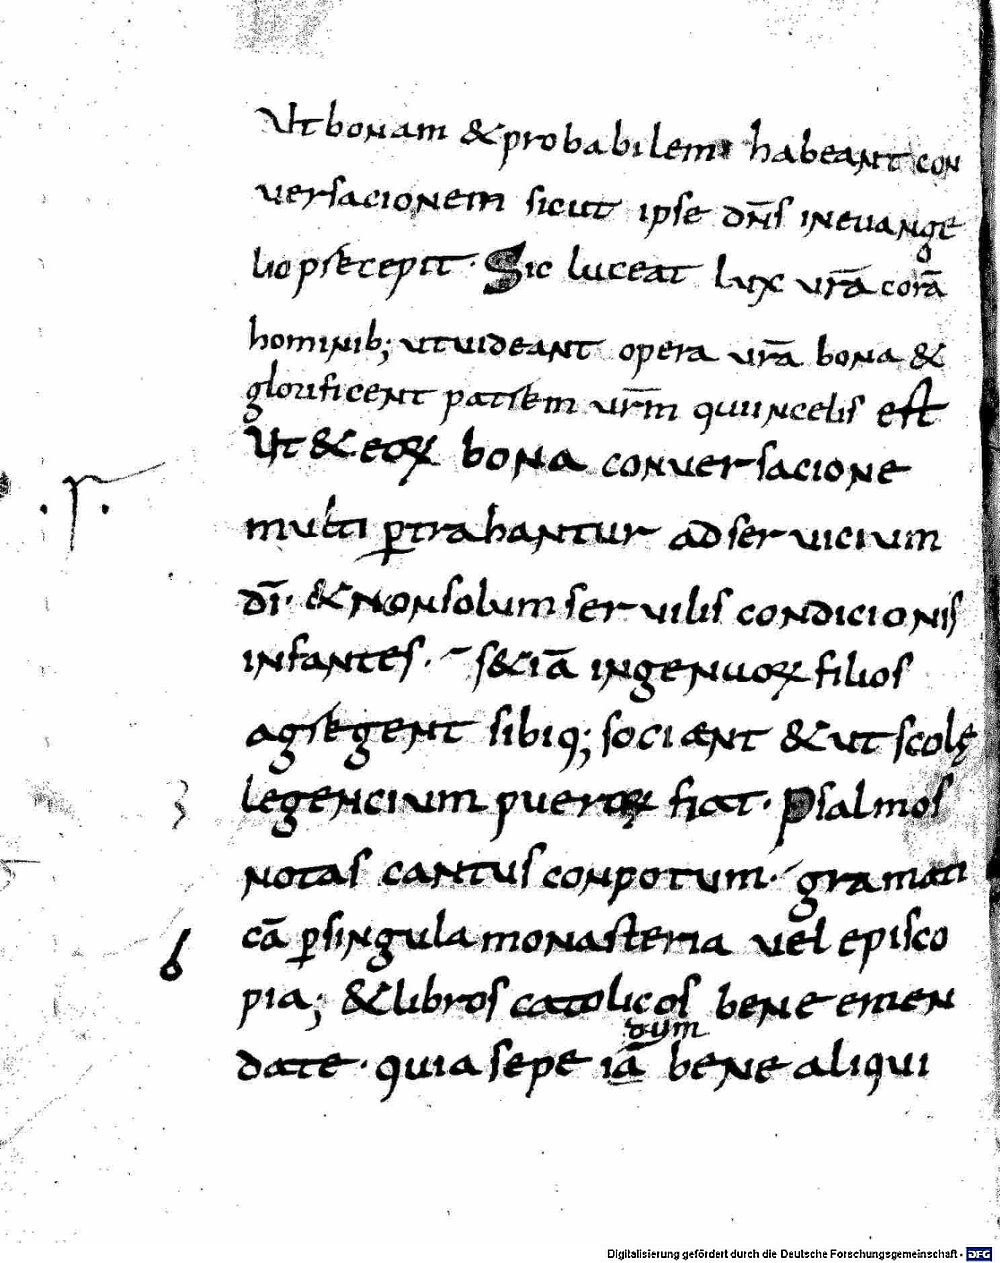 Ut bonam & probabilem habeant con
uersacionem sicut ipse dn̄s in euange
lio p̄recepit. Sic luceat lux ur̄a corā
hominib; ut uideant opera ur̄a bona &
glorificent patrem ur̄m qui in celis est
Ut & eoꝝ bona conuersacione
multi ꝑtrahantur ad seruicium
dī. & non solum seruilis condicionis
infantes. sed &iā ingenuoꝝ filios
adgregent sibiq; socient & ut scolę
legencium pueroꝝ fiat. Psalmos
notas cantus conpotum. gramati
cā ꝑ singula monasteria uel episco
pia; & libros catolicos bene emen
dum
date. quia sepe iā bene aliqui
Digitalisierung gefördert durch die Deutsche Forschungsgemeinschaft - DFG